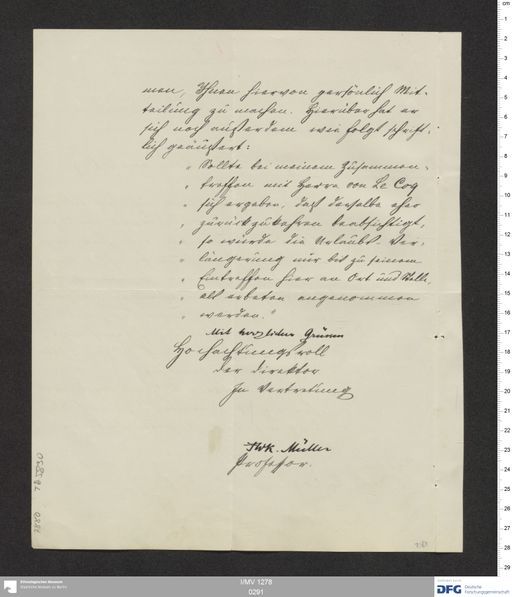 men, Ihnen hiervon persönlich Mit-
teilung zu machen. Hierüber hat er
sich noch außerdem wie folgt schrift-
lich geäußert:
„Sollte bei meinem Zusammen-
„ treffen mit Herrn von Le Coq
„ sich ergeben, daß derselbe eher
„ zurückzukehren beabsichtigt,
„ so würde die Urlaubs-Ver-
„ längerung nur bis zu seinem
„ Eintreffen hier an Ort und Stelle
„ als erbeten angenommen
„ werden."
Mit herzlichen Grüßen
Hochachtungsvoll
Der Direktor
In Vertretung
FWK. Müller
Professor.
I/MV 1278
0291
Ethnologisches Museum
Staatliche Museen zu Berlin
DFG
Deutsche
Forschungsgemeinschaft
cm
1
2
3
4
5
6
7
8
9
10
11
12
13
14
15
16
17
18
19
20
21
22
23
24
25
26
27
28
29